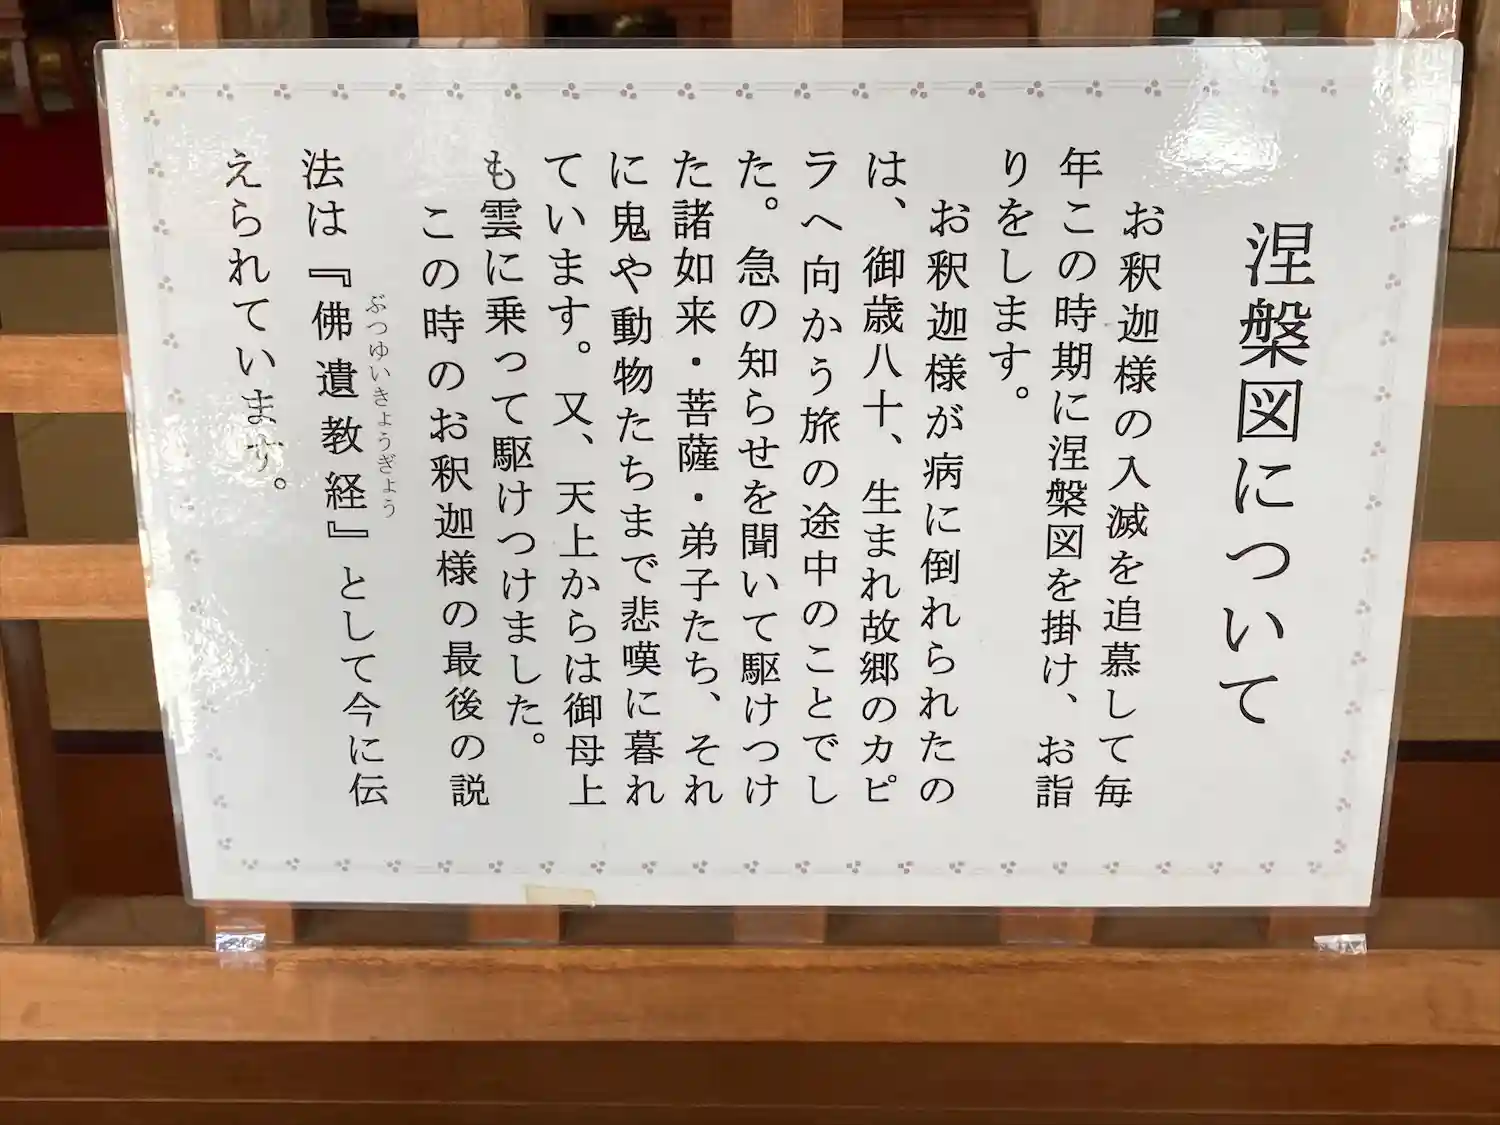 涅槃図について
お釈迦様の入滅を追慕して毎
年この時期に涅槃図を掛け、お詣
りをします。
お釈迦様が病に倒れられたの
は、御歳八十、生まれ故郷のカピ
ラへ向かう旅の途中のことでし
た。急の知らせを聞いて駆けつけ
た諸如来・菩薩・弟子たち、それ
に鬼や動物たちまで悲嘆に暮れ
ています。又、天上からは御母上
も雲に乗って駆けつけました。
この時のお釈迦様の最後の説
ぶつゆいきょうぎょう
法は『佛遺教経』として今に伝
えられています。